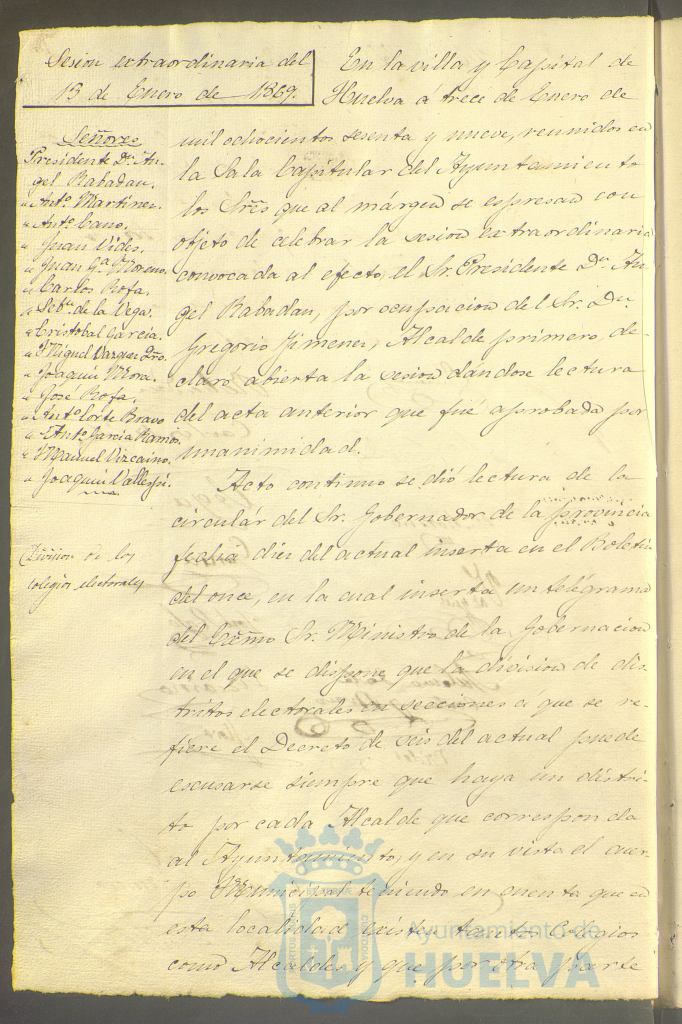 Sesion extraordinaria del
13 de Enero de 1869.
Señores
Presidente Dn. An-
gel Rabadan.
" Antº. Martinez.
" Antº. Cano.
" Juan Vides.
" Juan Gª. Moreno.
" Carlos Rofa.
" Sebn. de la Vega.
" Cristobal Garcia.
" Miguel Vazquez
" Joaquin Mora.
" Jose Rofa.
" Antº. Corte Bravo
" Antº. Garcia Ramos.
" Manuel Vizcaino.
" Joaquin Vallespi.
Division de los
colegios electorales
En la villa y Capital de
Huelva á trece de Enero de
mil ochocientos sesenta y nueve, reunidos en
la Sala Capitular del Ayuntamiento
los Sres que al márgen se espresan con
objeto de celebrar la sesion extraordinaria
convocada al efecto, el Sr. Presidente Dn. An-
gel Rabadan, por ocupacion del Sr. Dn.
Gregorio Jimenez, Alcalde primero, de-
claro abierta la sesion dandose lectura
del acta anterior que fué aprobada por
unanimidad.
Acto continuo se dió lectura de la
circulár del Sr. Gobernador de la provincia
fecha diez del actual inserta en el Boletin
del once, en la cual inserta un telégrama
del Exmo Sr. Ministro de la Gobernacion
en el que se dispone que la division de dis-
tritos electorales en secciones á que se re-
fiere el Decreto de seis del actual puede
escusarse siempre que haya un distri-
to por cada Alcalde que corresponda
al Ayuntamiento, y en su vista el cuer-
po Municipal teniendo en cuenta que en
esta localidad existen tantos Colegios
como Alcaldes, y que por otra parte
Ayuntamiento de
HUELVA